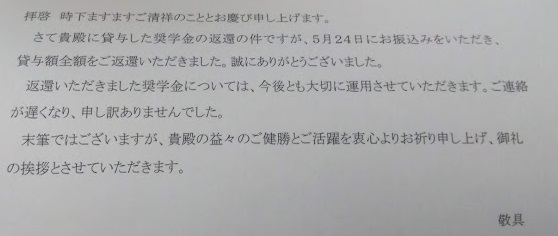 拝啓　時下ますますご清祥のこととお慶び申し上げます。
さて貴殿に貸与した奨学金の返還の件ですが、5月24日にお振込みをいただき、
貸与額全額をご返還いただきました。誠にありがとうございました。
返還いただきました奨学金については、今後とも大切に運用させていただきます。ご連絡
が遅くなり、申し訳ありませんでした。
末筆ではございますが、貴殿の益々のご健勝とご活躍を衷心よりお祈り申し上げ、御礼
の挨拶とさせていただきます。
敬具